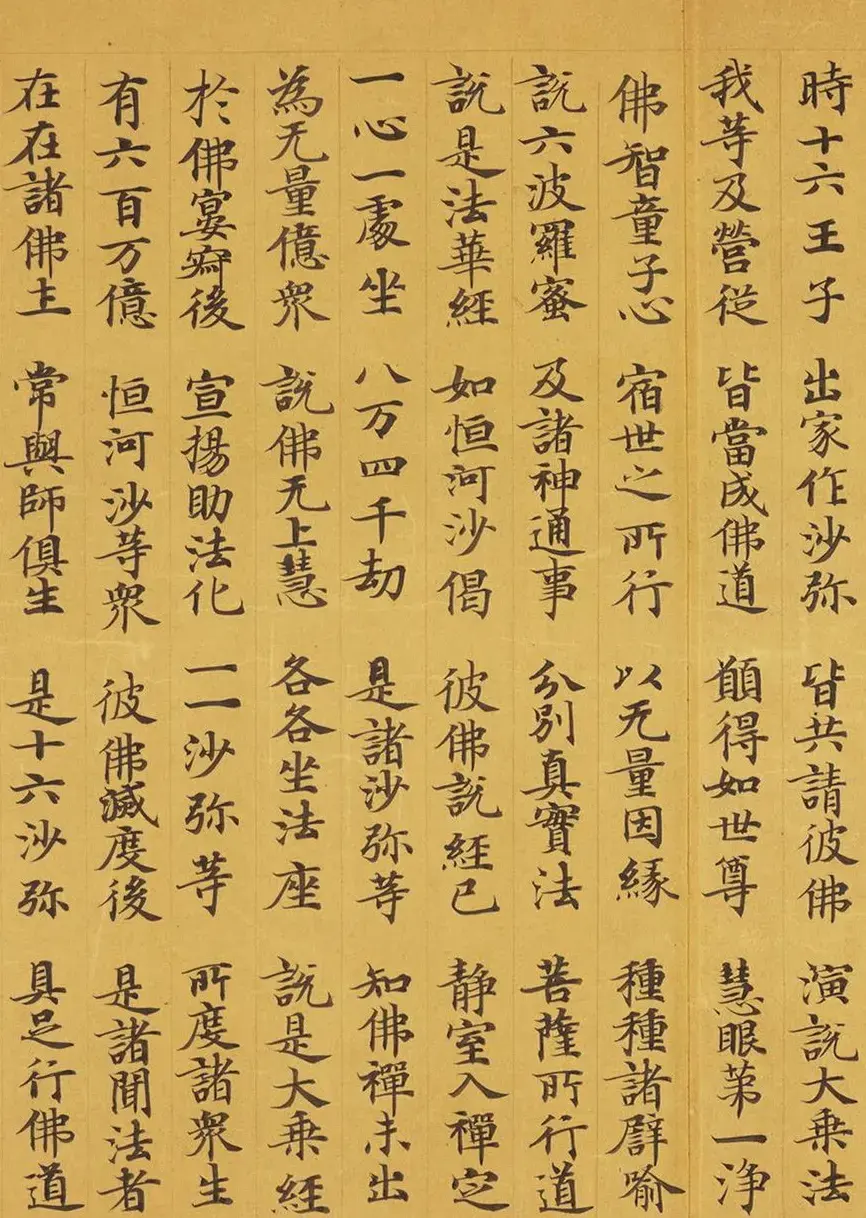 時十六王子 出家作沙弥 皆共請彼佛 演說大乘法
我等及營從 皆當成佛道 願得如世尊 慧眼第一淨
佛智童子心 宿世之所行 以无量因緣 種種諸辟喻
說六波羅蜜 及諸神通事 分別真實法 菩薩所行道
說是法華經 如恒河沙偈 彼佛說經已 靜室入禪定
一心一處坐 八万四千劫 是諸沙弥等 知佛禪未出
為无量億眾 說佛无上慧 各各坐法座 說是大乘經
於佛宴寂後 宣揚助法化 一一沙弥等 所度諸眾生
有六百万億 恒河沙等眾 彼佛滅度後 是諸聞法者
在在諸佛土 常與師俱生 是十六沙弥 具足行佛道